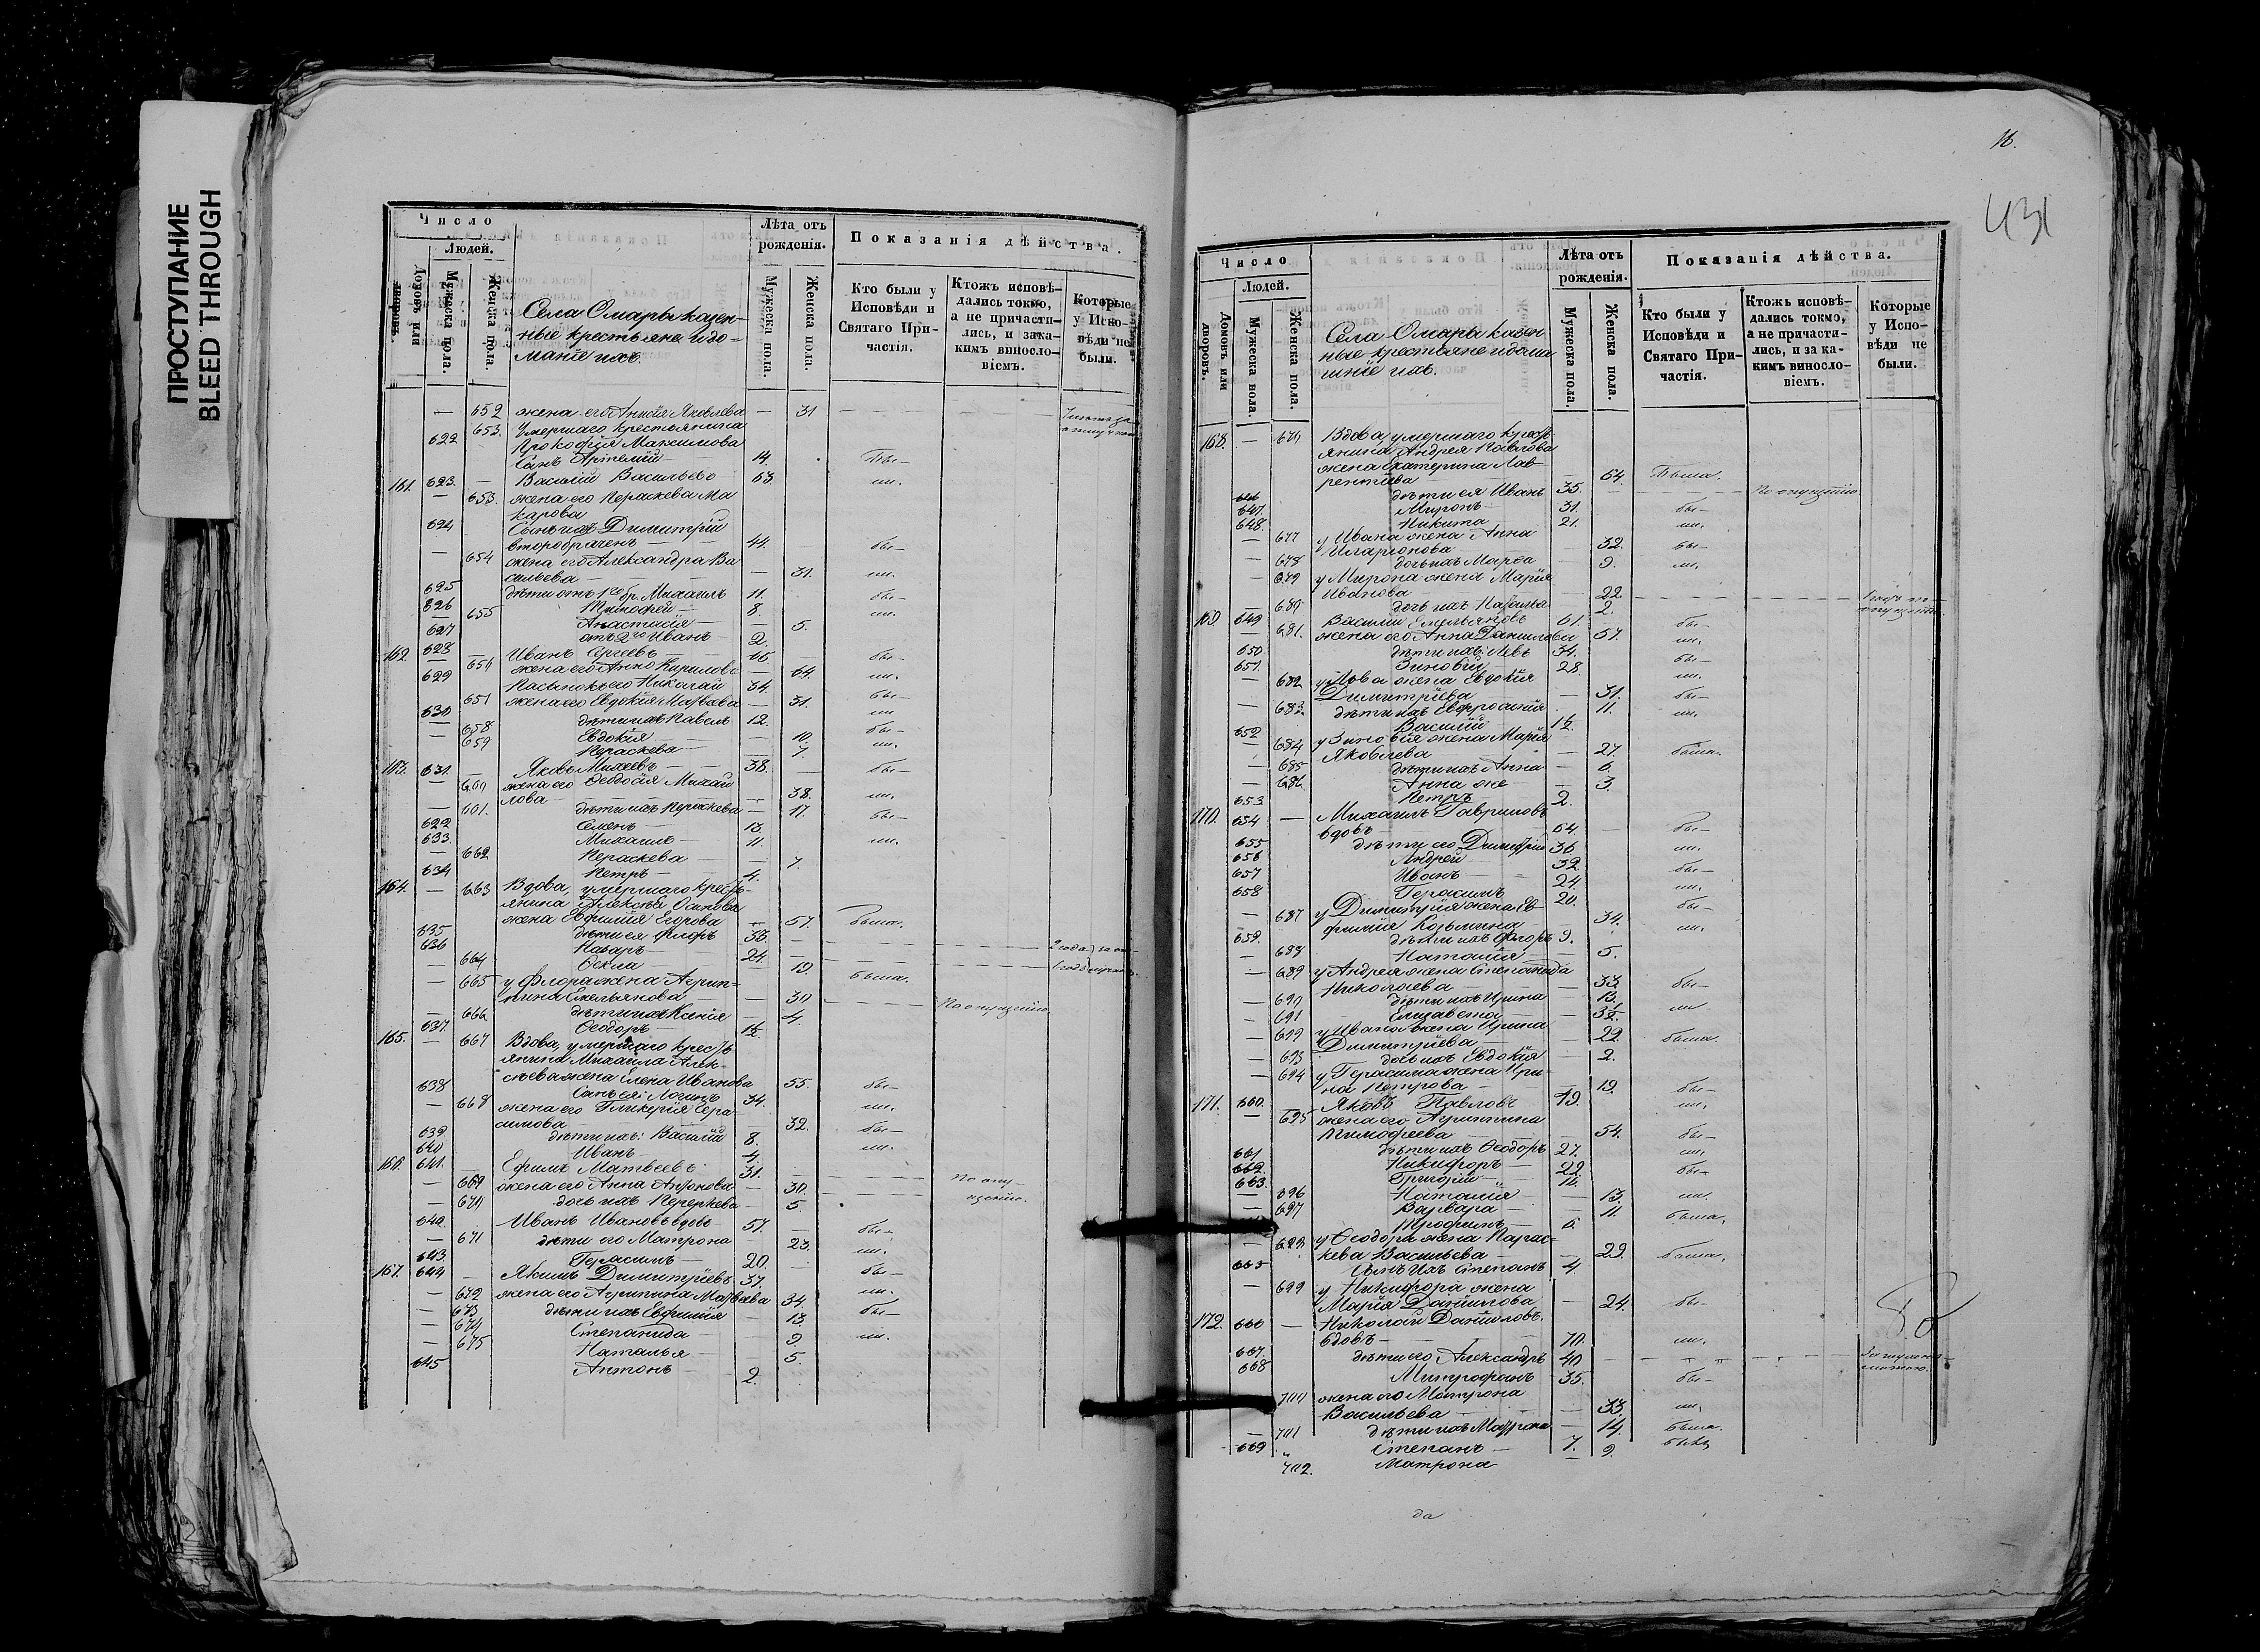 ПРОСТУПАНИЕ
BLEED THROUGH
Число
Людей.
Домовъ или дворовъ.
Мужеска пола.
Женска пола.
Села Омары казен-
ные крестьяне и до-
машніе ихъ.
Лѣта отъ рожденія.
Мужеска пола.
Женска пола.
Показанія дѣйства.
Кто были у Исповѣди и Святаго При-частія.
Ктожъ исповѣ-дались токмо, а не причасти-лись, и за ка-кимъ винослo-віемъ.
Которые у Испо-вѣди не были.
— 652 жена его Анисія Яковлева — 31
653. Умершаго крестьянина
Прокофія Максимова
622 Сынъ Артемій 14. бы—
161. 623. — Василій Васильевъ 63. ли.
— 653. жена его Параскева Ма
карова
624 Сынъ ихъ Димитрій
второбраченъ — 44. бы—
— 654 жена его Александра Ва
сильева — 31. ли.
625 дѣти отъ 1го бр. Михаилъ 11. бы—
626 Тимофей 8. ли.
655 Анастасія — 5.
627 отъ 2го Иванъ 2.
162. 628 — Иванъ Сергѣевъ 65 бы—
— 656 жена его Анна Кирилова — 64. ли.
629 Пасынокъ его Николай 34. бы—
657 жена его Евдокія Матвѣева — 31. ли
630 дѣти ихъ Павелъ 12. бы—
— 658 Евдокія — 10. ли.
— 659 Параскева — 7.
163. 631. Яковъ Михеевъ 38. бы—
— 660 жена его Ѳеодосія Михай
лова — 38. ли.
— 661. дѣти ихъ Параскева — 17. бы—
632 Семенъ 13. ли.
633. Михаилъ 11.
— 662 Параскева — 7.
634 Петръ 4.
164. — 663 Вдова, умершаго кресть-
янина Алексѣя Осипова
жена Евфимія Егорова — 57. была.
635 дѣти ея Флоръ 33. 2 года
636 Назаръ 24. 1 годъ
— 664 Ѳекла — 19. была.
— 665 у Флора жена Агрип-
пина Емельянова — 30 По опущенію
— 666 дѣти ихъ Ксенія — 4.
637. Ѳеодоръ
165. — 667 Вдова, умершаго кресть-
янина Михаила Алек-
сѣева жена Елена Иванова 55. бы—
638 Сынъ ея: Логинъ 34. ли.
— 668 жена его Гликерія Гера-
симова — 32. бы—
639. дѣти ихъ: Василій 8. ли.
640 Иванъ 4.
166. 641. Ефимъ Матвѣевъ 31. По опу-
— 669 жена его Анна Антонова — 30. щенію.
— 670 дочь ихъ — 5.
642. Иванъ Ивановъ вдовъ 57. бы—
— 671 дѣти его Матрона — 23. ли.
643 Герасимъ 20. бы—
167. 644 — Якимъ Димитріевъ 37. ли.
— 672 жена его Агрипина Матвѣева 34. бы—
— 673 дѣти ихъ Евфимія — 13. ли.
— 674 Степанида — 9.
— 675 Наталья — 5.
645 Антонъ 2.
16.
431
Число
Людей.
Домовъ или дворовъ.
Мужеска пола.
Женска пола.
Села Омары казен
ные крестьяне и дома
шніе ихъ.
Лѣта отъ рожденія.
Мужеска пола.
Женска пола.
Показанія дѣйства.
Кто были у Исповѣди и Святаго При-частія.
Ктожъ исповѣ-дались токмо, а не причасти-лись, и за ка-кимъ винослo-віемъ.
Которые у Испо-вѣди не были.
168. — 676 Вдова, умершаго кресть-
янина Андрея Павлова
жена Екатерина Лав-
рентіева 64. Была.
646 дѣти ея Иванъ 35. По опущенію
647. Миронъ 31. бы—
648. Никита 21. ли.
— 677 у Ивана жена Анна
Иларіонова 32. бы—
— 678 дочь ихъ Марѳа 9. ли.
— 679 у Мирона жена Марія
Иванова 22
— 680 дочь ихъ Наталья 2.
169. 649 Василій Емельяновъ 61. бы—
— 681. жена его Анна Данилова 57. ли.
650 дѣти ихъ: Левъ 34. бы—
651. Зиновій 28. ли.
— 682 у Льва жена Евдокія
Димитріева — 31. бы—
— 683. дѣти ихъ Евфросинія 11. ли.
652 Василій
— 684 у Зиновія жена Марія
Яковлева — 27 была.
— 685 дѣти ихъ Анна — 6.
— 686 Анна же — 3
653 Петръ 2.
170. 654 — Михаилъ Гавриловъ
вдовъ 64. бы—
655 дѣти его Димитрій 36 ли.
656 Андрей 32. бы—
657 Иванъ 24. ли.
658 Герасимъ 20. бы—
— 687 у Димитрія жена Ев-
фимія Козьмина 34. ли.
659. дѣти ихъ Флоръ 9.
— 688 Наталія — 5.
— 689 у Андрея жена Степанида
Николаева — 33. бы—
— 690 дѣти ихъ Ирина — 13. ли
— 691 Елизавета
— 692 у Ивана жена Ирина
Димитріева — 22. была.
— 693 дочь ихъ Евдокія — 2.
— 694 у Герасима жена Ири-
на Петрова — 19. бы—
171. 660. Яковъ Павловъ ли.
— 695 жена его Агрипина
Тимофеева — 54. бы—
661 дѣти ихъ Ѳеодоръ 27. ли.
662. Никифоръ 22. бы—
663. Григорій 16.
— 696 Наталія — 13. ли.
— 697 Варвара — 11. была.
Трофимъ 6.
— 698 у Ѳеодора жена Парас-
кева Васильева — 29. была.
665 сынъ ихъ Степанъ 4.
— 699 у Никифора жена
Марія Данилова — 24. бы—
172. 666 — Николай Даниловъ,
вдовъ 70. ли.
667. дѣти его Александръ 40
668 Митрофанъ 35. бы—
700 жена его Матрона
Васильева — 33. ли.
— 701 дѣти ихъ Матрона 14. была.
669 Степанъ 7.
702. Матрона — 2.
да